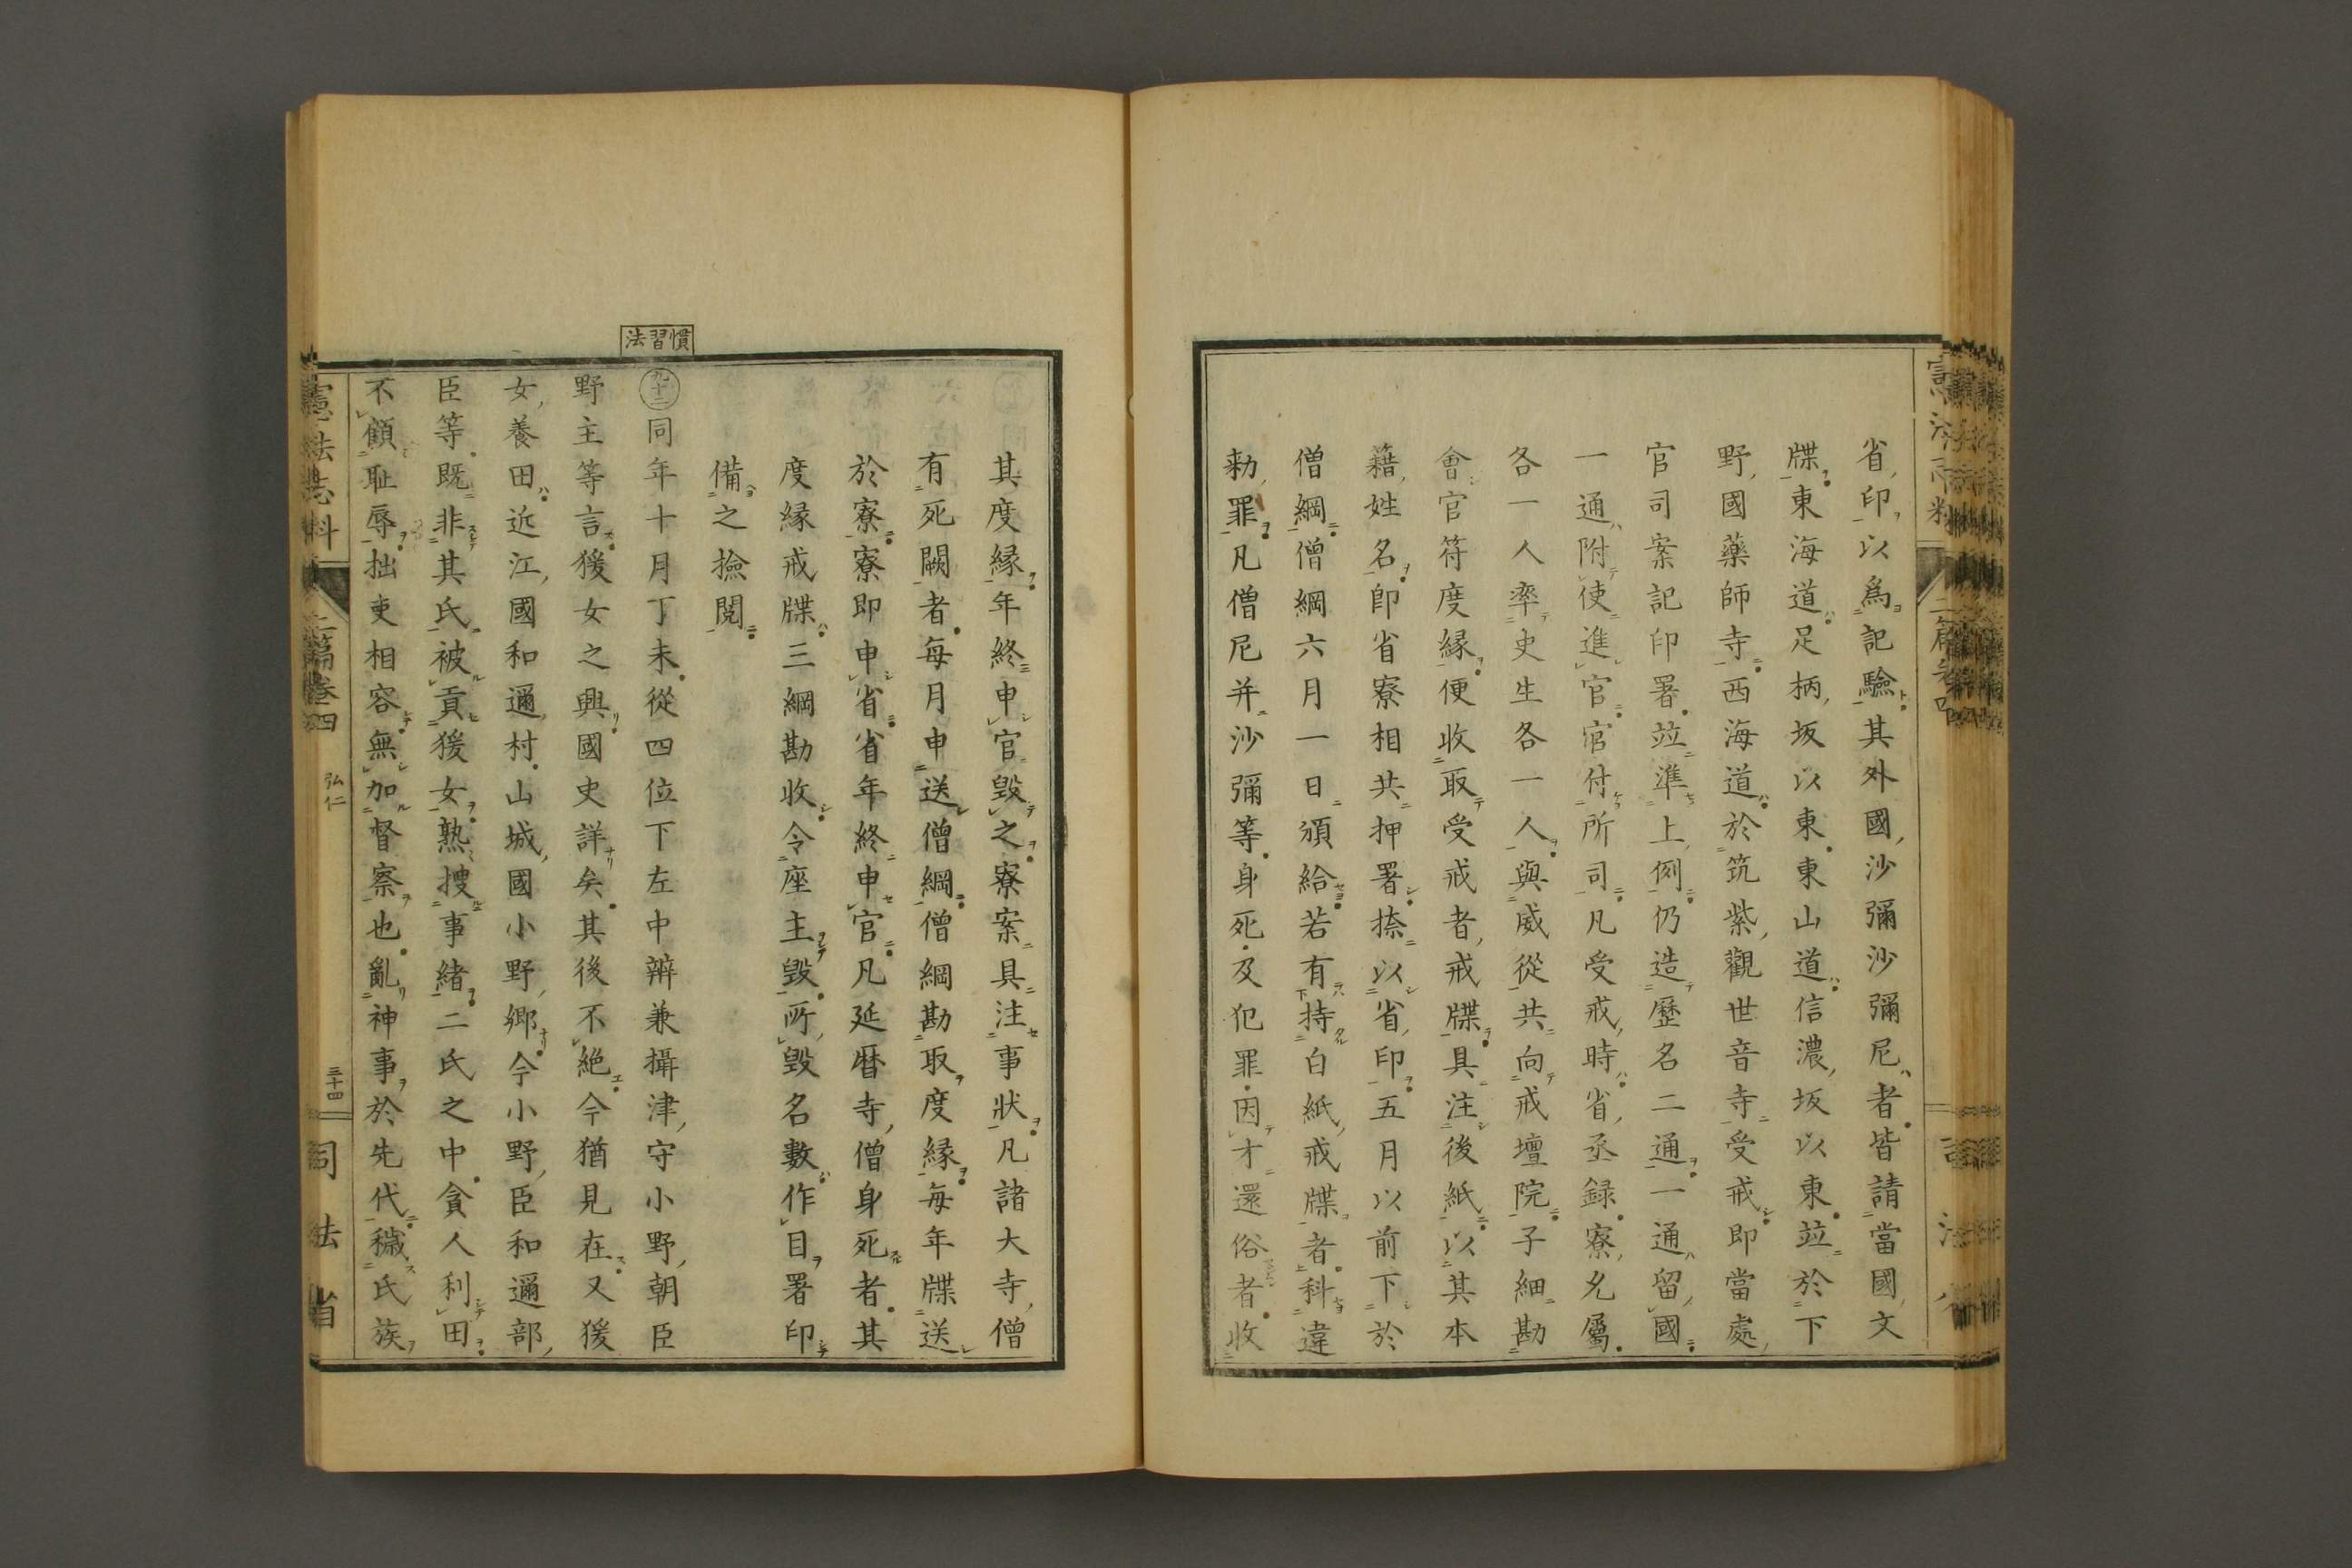 省印以爲記驗其外國沙彌沙彌尼者皆請當國文
牒東海道足柄坂以東東山道信濃坂以東竝於下
野國藥師寺西海道於筑紫觀世音寺受戒即當處
官司案記印署竝準上例仍造歷名二通一通留國
一通附使進官官付所司凡受戒時省丞録寮允屬
各一人率史生各一人與威從共向戒壇院子細勘
會官符度縁便收取受戒者戒牒具注後紙以其本
籍姓名即省寮相共押署捺以省印五月以前下於
僧綱僧綱六月一日頒給若有持白紙戒牒者科違
勅罪凡僧尼并沙彌等身死及犯罪因才還俗者收
其度縁年終申官毀之寮案具注事狀凡諸大寺僧
有死闕者毎月申送僧綱僧綱勘取度縁毎年牒送
於寮寮即申省省年終申官凡延暦寺僧身死者其
度縁戒牒三綱勘收令座主毀所毀名數作目署印
備之撿閲
慣習法
九十二同年十月丁未從四位下左中辨兼攝津守小野朝臣
野主等言猨女之興國史詳矣其後不絶今猶見在又猨
女養田近江國和邇村山城國小野郷今小野臣和邇部
臣等既非其氏被貢猨女熟捜事緒二氏之中貪人利田
不顧耻辱拙吏相容無加督察也亂神事於先代穢氏族
憲法志料
二篇卷四
弘仁
三十四
司法省